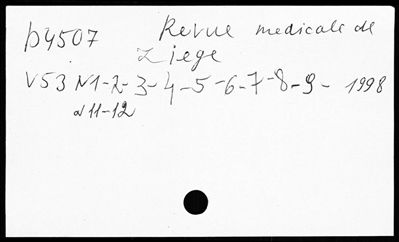 p4507 Revue medicale de
Liege
V53 N1-2-3-4-5-6-7-8-9- 1998
N11-12